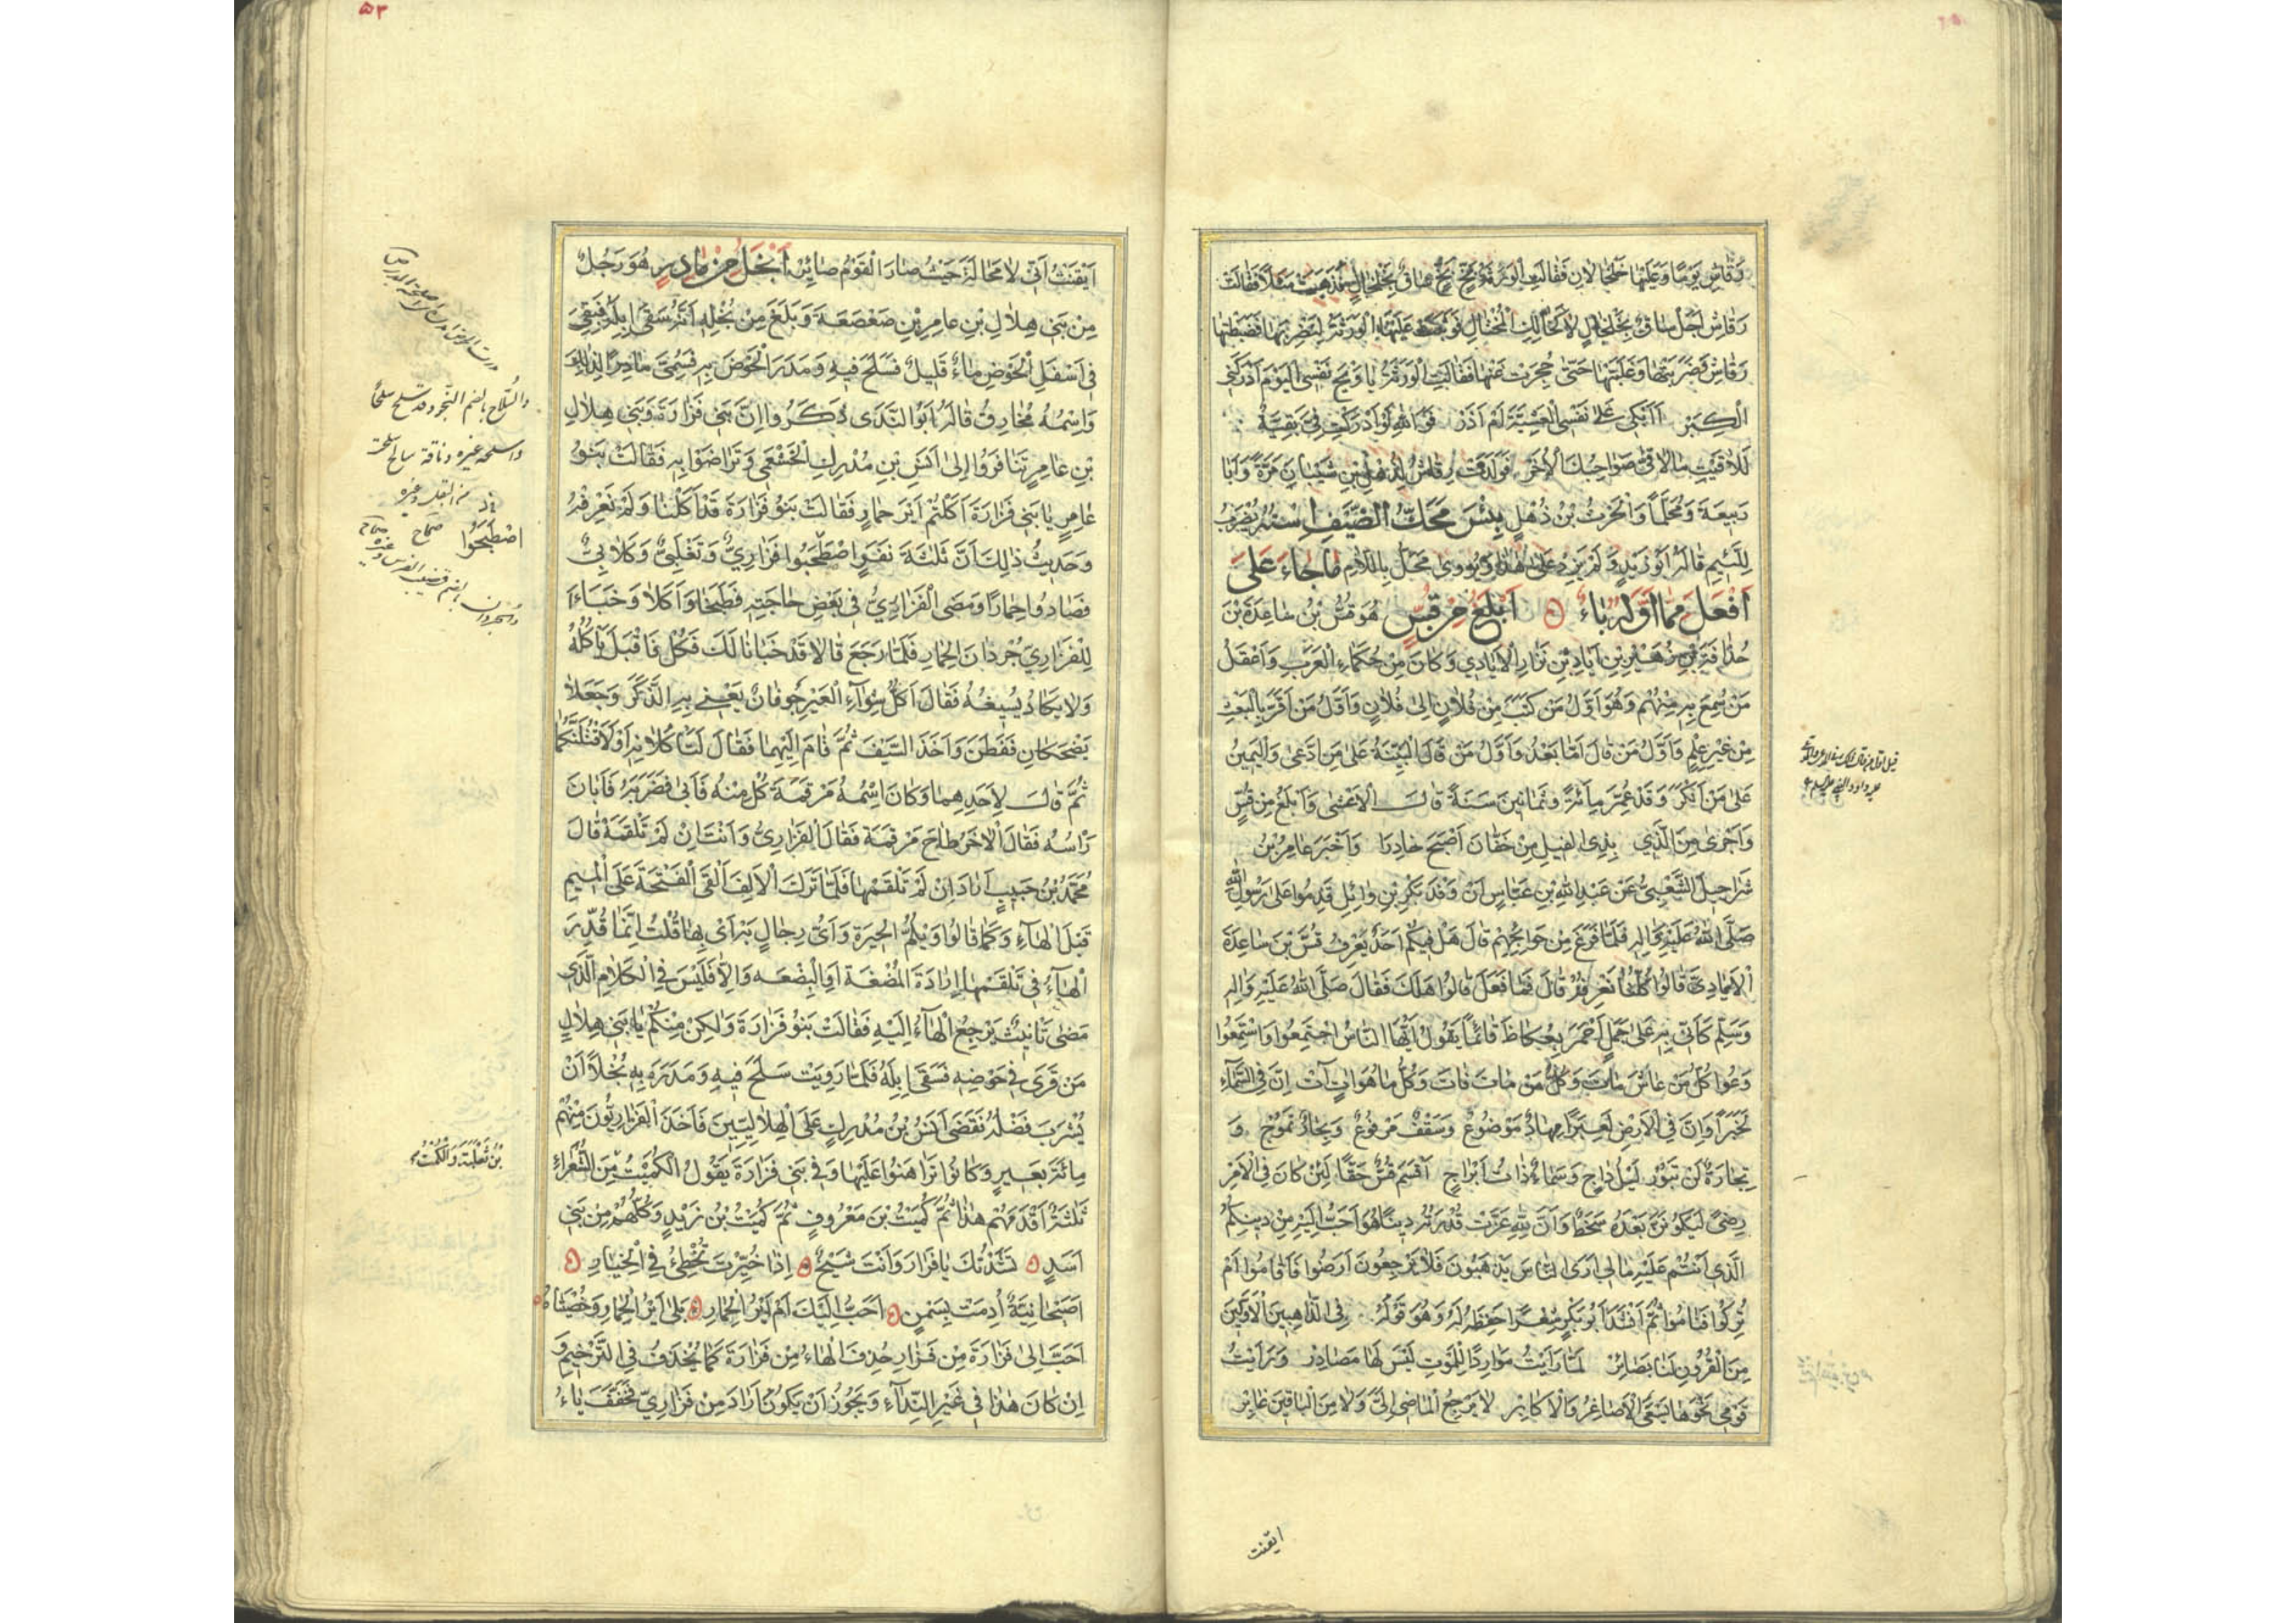 رَقَاشِ يَوْمًا وَعَلَيْهَا خَلْخَالَانِ فَقَالَتِ الْوَرْثَةُ بَخٍّ بَخٍّ سَاقٌ بِخَلْخَالٍ فَذَهَبَتْ مَثَلًا فَقَالَتْ
رَقَاشِ اَجَلْ سَاقٌ بِخَلْخَالٍ لَا كَخَالِكِ الْمُخْتَالِ فَوَثَبَتْ عَلَيْهَا الْوَرْثَةُ لِتَضْرِبَهَا فَضَبَطَتْهَا
رَقَاشِ فَضَرَبَتْهَا وَغَلَبَتْهَا حَتَّى حُجِزَتْ عَنْهَا فَقَالَتِ الْوَرْثَةُ يَا وَيْحَ نَفْسِي الْيَوْمَ اَدْرَكَنِي
الْكِبَرْ اَاَبْكِي عَلَى نَفْسِي الْعَشِيَّةَ اَمْ اَذَرْ فَوَاللّٰهِ لَوْ اَدْرَكْتِ فِيَّ بَقِيَّةً
لَلَاقَيْتِ مَا لَاقَى صَوَاحِبُكِ الْاُخَرْ فَوَلَدَتْ رَقَاشِ لِذُهْلِ بْنِ شَيْبَانَ مُرَّةَ وَاَبَا
رَبِيعَةَ وَمُحَلِّمًا وَالْحَرْثَ بْنَ ذُهْلٍ بِئْسَ مَحَكُّ الضَّيْفِ اِسْتُهُ يُضْرَبُ
لِلَّئِيمِ قَالَهُ اَبُو زَيْدٍ وَلَمْ يَزِدْ عَلَى هٰذَا وَيُرْوَى مَحَلُّ بِاللَّامِ مَا جَاءَ عَلَى
اَفْعَلَ مِمَّا اَوَّلُهُ بَاءٌ اَبْلَغُ مِنْ قُسٍّ هُوَ قُسُّ بْنُ سَاعِدَةَ بْنِ
حُذَافَةَ بْنِ زُهَيْرِ بْنِ اِيَادِ بْنِ نِزَارٍ الْاِيَادِي وَكَانَ مِنْ حُكَمَاءِ الْعَرَبِ وَاَعْقَلُ
مَنْ سُمِعَ بِهِ مِنْهُمْ وَهُوَ اَوَّلُ مَنْ كَتَبَ مِنْ فُلَانٍ اِلَى فُلَانٍ وَاَوَّلُ مَنْ اَقَرَّ بِالْبَعْثِ
مِنْ غَيْرِ عِلْمٍ وَاَوَّلُ مَنْ قَالَ اَمَّا بَعْدُ وَاَوَّلُ مَنْ قَالَ الْبَيِّنَةُ عَلَى مَنِ ادَّعَى وَالْيَمِينُ
عَلَى مَنْ اَنْكَرَ وَقَدْ عُمِّرَ مِائَةً وَثَمَانِينَ سَنَةً قَالَ الْاَعْشَى وَاَبْلَغُ مِنْ قُسٍّ
وَاَجْرَى مِنَ الَّذِي بِذِي الْغِيلِ مِنْ خَفَّانَ اَصْبَحَ خَادِرَا وَاَخْبَرَ عَامِرُ بْنُ
شَرَاحِيلَ الشَّعْبِيُّ عَنْ عَبْدِ اللّٰهِ بْنِ عَبَّاسٍ اَنَّ وَفْدَ بَكْرِ بْنِ وَائِلٍ قَدِمُوا عَلَى رَسُولِ اللّٰهِ
صَلَّى اللّٰهُ عَلَيْهِ وَاٰلِهِ فَلَمَّا فَرَغَ مِنْ حَوَائِجِهِمْ قَالَ هَلْ فِيكُمْ اَحَدٌ يَعْرِفُ قُسَّ بْنَ سَاعِدَةَ
الْاِيَادِيَّ قَالُوا كُلُّنَا نَعْرِفُهُ قَالَ فَمَا فَعَلَ قَالُوا هَلَكَ فَقَالَ صَلَّى اللّٰهُ عَلَيْهِ وَاٰلِهِ
وَسَلَّمَ كَاَنِّي بِهِ عَلَى جَمَلٍ اَحْمَرَ بِعُكَاظَ قَائِمًا يَقُولُ اَيُّهَا النَّاسُ اجْتَمِعُوا وَاسْتَمِعُوا
وَعُوا كُلُّ مَنْ عَاشَ مَاتَ وَكُلُّ مَنْ مَاتَ فَاتَ وَكُلُّ مَا هُوَ اٰتٍ اٰتٍ اِنَّ فِي السَّمَاءِ
لَخَبَرًا وَاِنَّ فِي الْاَرْضِ لَعِبَرًا مِهَادٌ مَوْضُوعٌ وَسَقْفٌ مَرْفُوعٌ وَبِحَارٌ تَمُوجُ وَ
تِجَارَةٌ لَنْ تَبُورَ لَيْلٌ دَاجٍ وَسَمَاءٌ ذَاتُ اَبْرَاجٍ اَقْسَمَ قُسٌّ حَقًّا لَئِنْ كَانَ فِي الْاَمْرِ
رِضًى لَيَكُونَنَّ بَعْدَهُ سَخَطًا وَاِنَّ لِلّٰهِ عَزَّتْ قُدْرَتُهُ دِينًا هُوَ اَحَبُّ اِلَيْهِ مِنْ دِينِكُمُ
الَّذِي اَنْتُمْ عَلَيْهِ مَا لِي اَرَى النَّاسَ يَذْهَبُونَ فَلَا يَرْجِعُونَ اَرَضُوا فَاَقَامُوا اَمْ
تُرِكُوا فَنَامُوا ثُمَّ اَنْشَدَ اَبُو بَكْرٍ شِعْرًا حَفِظَهُ لَهُ وَهُوَ قَوْلُهُ فِي الذَّاهِبِينَ الْاَوَّلِينَ
مِنَ الْقُرُونِ لَنَا بَصَائِرْ لَمَّا رَاَيْتُ مَوَارِدًا لِلْمَوْتِ لَيْسَ لَهَا مَصَادِرْ وَرَاَيْتُ
قَوْمِي نَحْوَهَا يَسْعَى الْاَصَاغِرُ وَالْاَكَابِرْ لَا يَرْجِعُ الْمَاضِي اِلَيَّ وَلَا مِنَ الْبَاقِينَ غَابِرْ
ايقنت
۵۳
اَيْقَنْتُ اَنِّي لَا مَحَالَةَ حَيْثُ صَارَ الْقَوْمُ صَائِرْ اَبْخَلُ مِنْ مَادِرٍ هُوَ رَجُلٌ
مِنْ بَنِي هِلَالِ بْنِ عَامِرِ بْنِ صَعْصَعَةَ وَبَلَغَ مِنْ بُخْلِهِ اَنَّهُ سَقَى اِبِلَهُ فَبَقِيَ
فِي اَسْفَلِ الْحَوْضِ مَاءٌ قَلِيلٌ فَسَلَحَ فِيهِ وَمَدَرَ الْحَوْضَ بِهِ فَسُمِّيَ مَادِرًا لِذٰلِكَ
وَاسْمُهُ مُخَارِقٌ قَالَ اَبُو النَّدَى ذَكَرُوا اِنَّ بَنِي فَزَارَةَ وَبَنِي هِلَالِ
بْنِ عَامِرٍ تَنَافَرُوا اِلَى اَنَسِ بْنِ مُدْرِكٍ الْخَثْعَمِيِّ وَتَرَاضَوْا بِهِ فَقَالَتْ بَنُو
عَامِرٍ يَا بَنِي فَزَارَةَ اَكَلْتُمْ اَيْرَ حِمَارٍ فَقَالَتْ بَنُو فَزَارَةَ قَدْ اَكَلْنَا وَلَمْ نَعْرِفْهُ
وَحَدِيثُ ذٰلِكَ اَنَّ ثَلٰثَةَ نَفَرٍ اصْطَحَبُوا فَزَارِيٌّ وَتَغْلَبِيٌّ وَكِلَابِيٌّ
فَصَادُوا حِمَارًا وَمَضَى الْفَزَارِيُّ فِي بَعْضِ حَاجَتِهِ فَطَبَخَا وَاَكَلَا وَخَبَاءَا
لِلْفَزَارِيِّ جُرْدَانَ الْحِمَارِ فَلَمَّا رَجَعَ قَالَا قَدْ خَبَاْنَا لَكَ فَكُلْ فَاَقْبَلَ يَاْكُلُهُ
وَلَا يَكَادُ يُسِيغُهُ فَقَالَ اَكُلُّ شِوَاءِ الْعَيْرِ جُوفَانٌ يَعْنِي بِهِ الذَّكَرَ وَجَعَلَا
يَضْحَكَانِ فَفَطِنَ وَاَخَذَ السَّيْفَ ثُمَّ قَامَ اِلَيْهِمَا فَقَالَ لَتَاْكُلَانِهِ اَوْ لَاَقْتُلَنَّكُمَا
ثُمَّ قَالَ لِاَحَدِهِمَا وَكَانَ اسْمُهُ مَرْقَمَةَ كُلْ مِنْهُ فَاَبَى فَضَرَبَهُ فَاَبَانَ
رَاْسَهُ فَقَالَ الْاٰخَرُ طَاحَ مَرْقَمَةُ فَقَالَ الْفَزَارِيُّ وَاَنْتَ اِنْ لَمْ تَلْقَمَهْ قَالَ
مُحَمَّدُ بْنُ حَبِيبٍ اَرَادَ اِنْ لَمْ تَلْقَمْهَا فَلَمَّا تَرَكَ الْاَلِفَ اَلْقَى الْفَتْحَةَ عَلَى الْمِيمِ
قَبْلَ الْهَاءِ وَكَمَا قَالُوا وَيْلُمِّ الْحِيرَةِ وَاَيُّ رِجَالٍ بَهْ اَيْ بِهَا قُلْتُ اِنَّمَا قُدِّرَ
الْهَاءُ فِي تَلْقَمْهَا اِرَادَةَ الْمُضْغَةِ اَوِ الْبِضْعَةِ وَاِلَّا فَلَيْسَ فِي الْكَلَامِ الَّذِي
مَضَى تَاْنِيثٌ يَرْجِعُ الْهَاءُ اِلَيْهِ فَقَالَتْ بَنُو فَزَارَةَ وَلٰكِنْ مِنْكُمْ يَا بَنِي هِلَالٍ
مَنْ قَرَى فِي حَوْضِهِ فَسَقَى اِبِلَهُ فَلَمَّا رَوِيَتْ سَلَحَ فِيهِ وَمَدَرَهُ بِهِ بُخْلًا اَنْ
يُشْرَبَ فَضْلُهُ فَقَضَى اَنَسُ بْنُ مُدْرِكٍ عَلَى الْهِلَالِيِّينَ فَاَخَذَ الْفَزَارِيُّونَ مِنْهُمْ
مِائَةَ بَعِيرٍ وَكَانُوا تَرَاهَنُوا عَلَيْهَا وَفِي بَنِي فَزَارَةَ يَقُولُ الْكُمَيْتُ مِنَ الشُّعَرَاءِ
ثَلٰثَةٌ اَقْدَمُهُمْ هٰذَا ثُمَّ كُمَيْتُ بْنُ مَعْرُوفٍ ثُمَّ كُمَيْتُ بْنُ زَيْدٍ وَكُلُّهُمْ مِنْ بَنِي
اَسَدٍ نَشَدْتُكَ يَا فَزَارَ وَاَنْتَ شَيْخٌ اِذَا خُيِّرْتَ تُخْطِئُ فِي الْخِيَارِ
اَصَيْحَانِيَّةٌ اُدِمَتْ بِسَمْنٍ اَحَبُّ اِلَيْكَ اَمْ اَيْرُ الْحِمَارِ بَلَى اَيْرُ الْحِمَارِ وَخُصْيَتَاهُ
اَحَبُّ اِلَى فَزَارَةَ مِنْ فَزَارِ حُذِفَ الْهَاءُ مِنْ فَزَارَةَ كَمَا يُحْذَفُ فِي التَّرْخِيمِ وَ
اِنْ كَانَ هٰذَا فِي غَيْرِ النِّدَاءِ وَيَجُوزُ اَنْ يَكُونَ اَرَادَ مِنْ فَزَارِيٍّ فَخَفَّفَ يَاءُ
والسُلاح بالضم النجو وقد سلح سلحًا
واسلحه غيره وناقة سالح سلحت
من البقل وغيره
اصْطَبَحُوا صحاح
بْنُ ثَعْلَبَةَ وَالْكُمَيْتُ